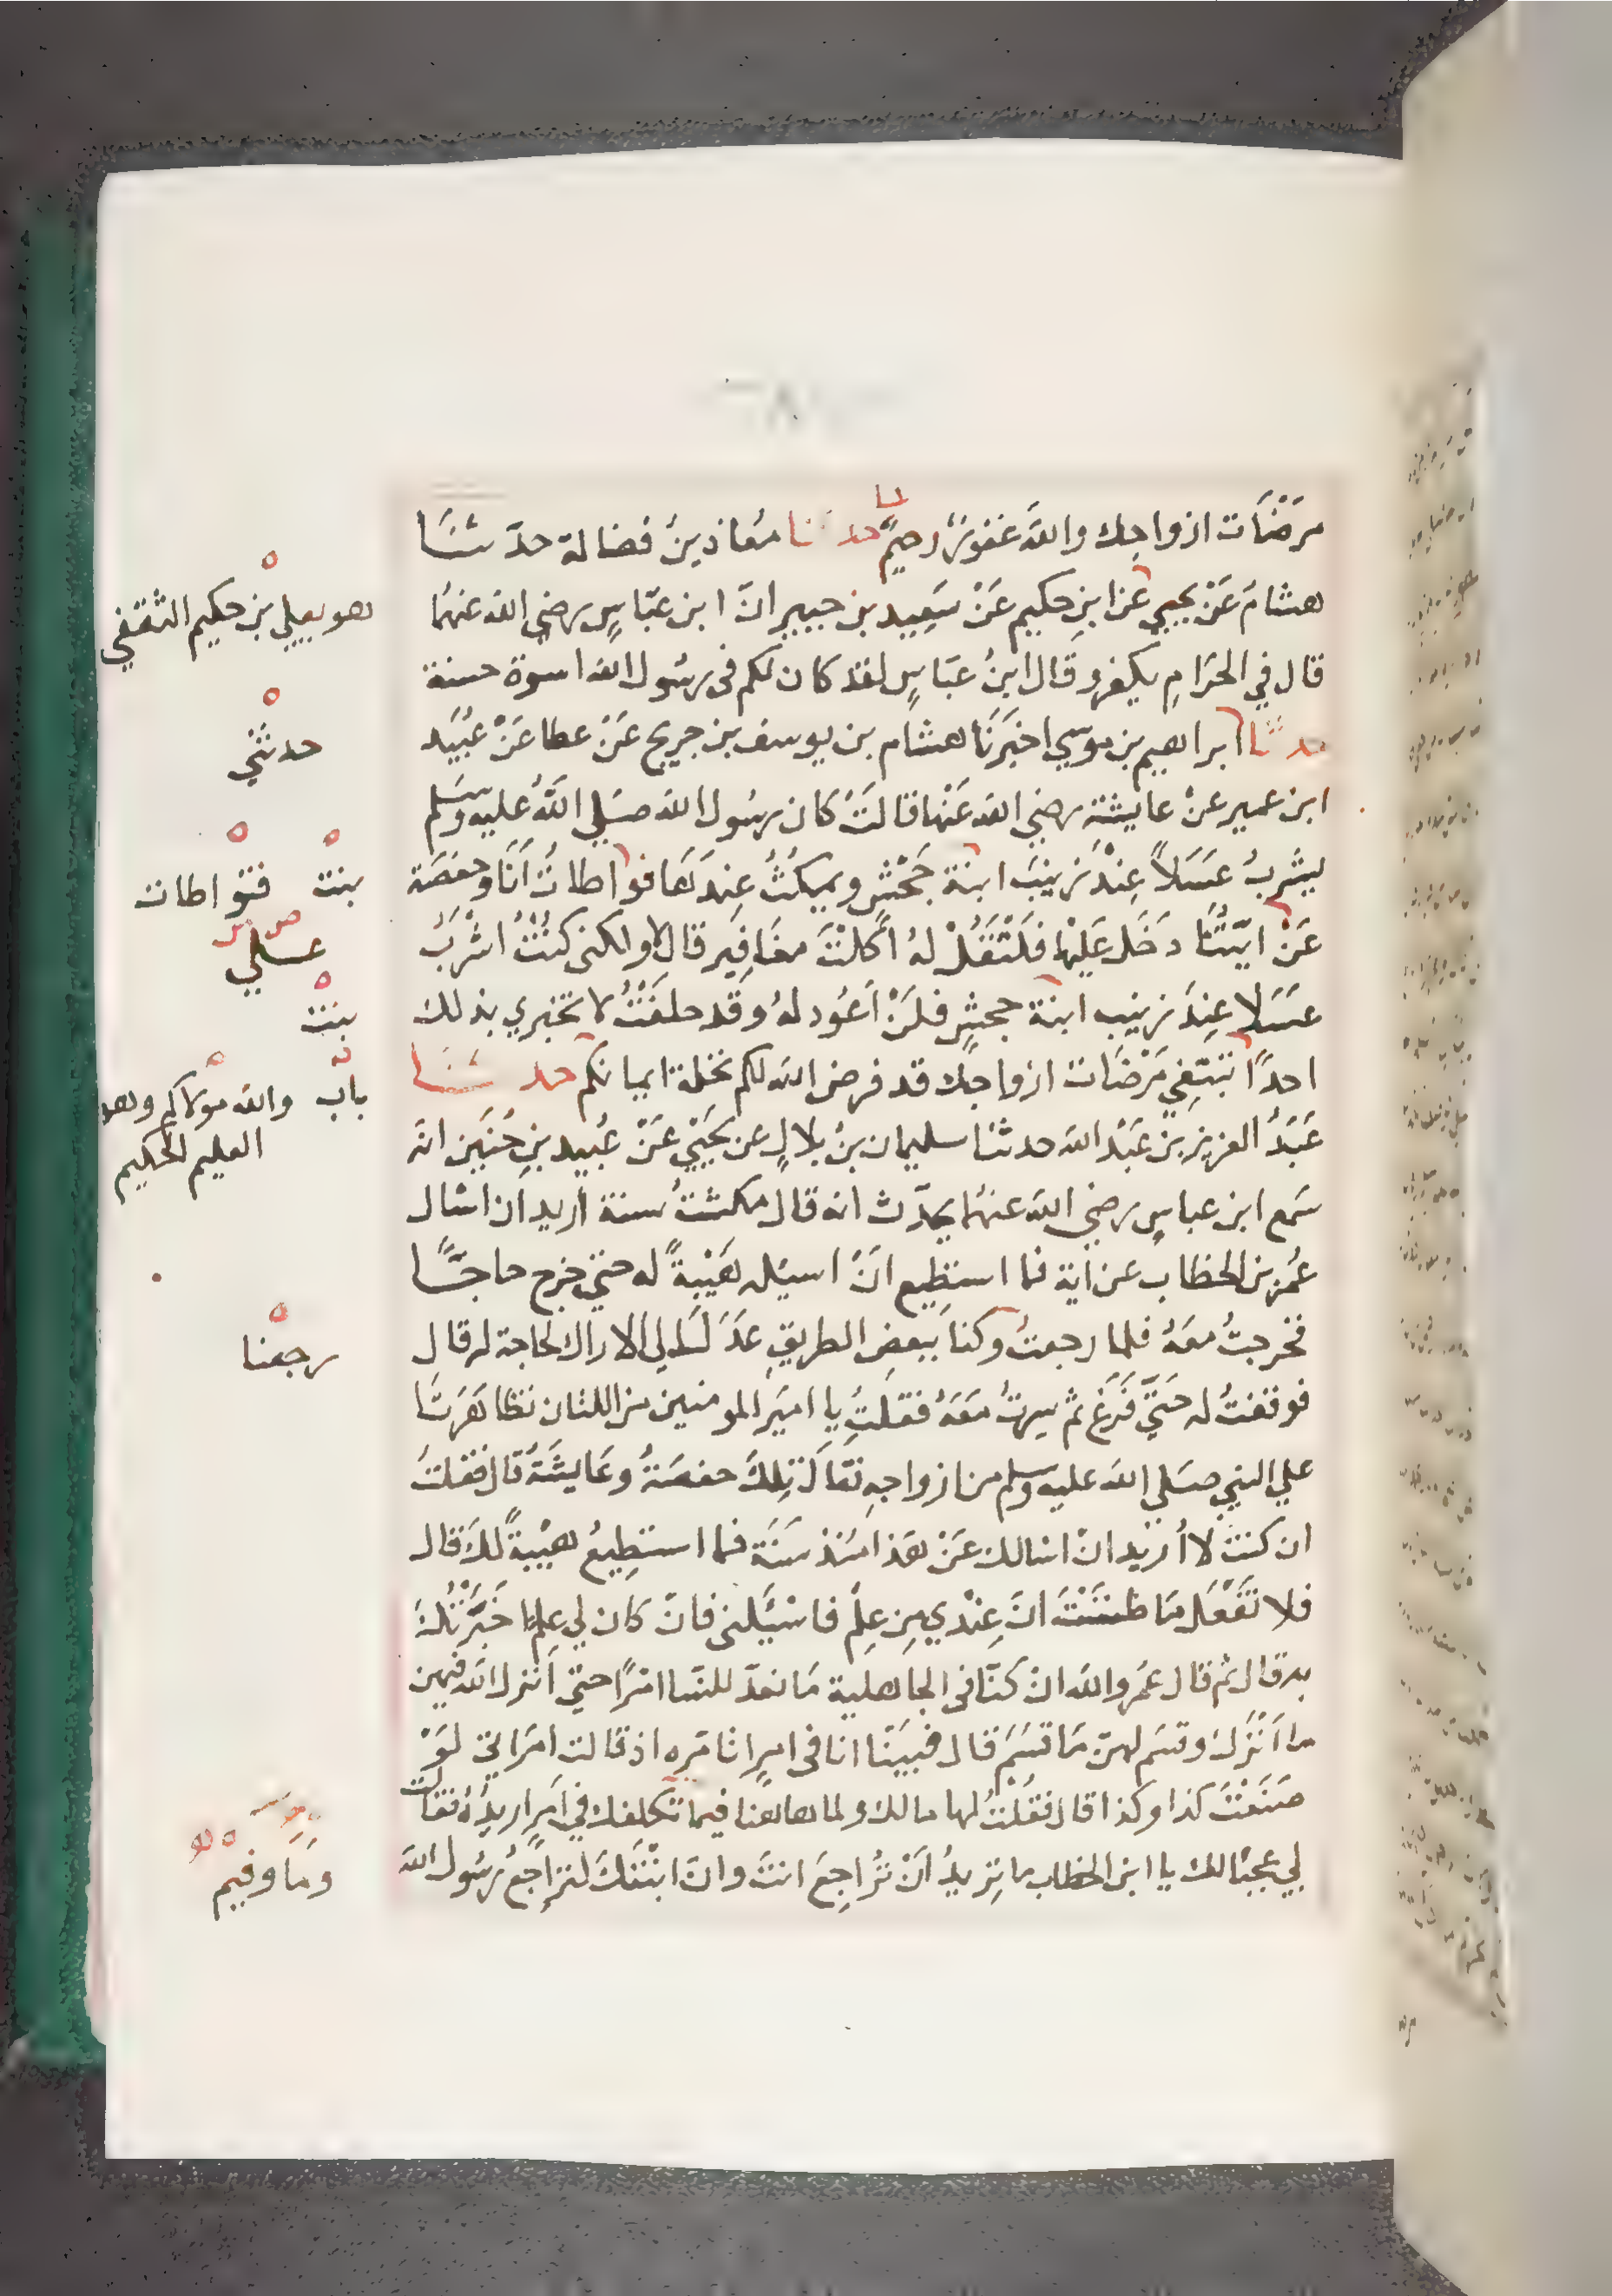 مَرْضَات ازواجك واللهُ غفورٌ رحيمٌ حدثنا معاذ بنُ فضالة حدّثنَا
هشامٌ عَنْ يحيي عن ابنِ حكيم عَنْ سَعِيد بن جبير انّ ابن عبّاسٍ رضي الله عنهمَا
قال في الحرَامِ يكفر وقال ابنُ عبَاسٍ لقد كان لكم فى رسُول الله اسوة حسنة
حدثنا ابراهيم بن موسي اخبَرنَا هشام بن يوسف بن جريج عَنْ عطا عَنْ عُبَيد
ابن عمير عنْ عايشة رضي الله عَنْها قالتَ كان رسُول الله صَلي اللهُ عليه وسَلم
يشربُ عَسَلاً عِنْد زينبَ ابنة جَحْشٍ ويمكثُ عِندَها فواطاتُ أنَا وحفصَة
عَنْ ايّتُنَا دخَل عَليْها فلتَقُلْ لهُ أكلتَ مغَافِير قال لا ولكنى كنْتُ اشربُ
عسَلا عِندَ زينب ابنة جحشٍ فلَنْ أعُود لهُ وقد حلفتُ لا تخبري بذلك
احدًا تبتغي مَرْضَات ازواجك قد فرض الله لكم تحلة ايمانكم حدثنا
عَبدُ العزيز بن عَبْد الله حدثنا سليمان بنُ بلالٍ عن يحَيْي عَنْ عُبيد بنِ حُنَين انه
سَمع ابن عباسٍ رضي الله عنهمَا يحدّث انه قال مكثتُ سنة أريد ان اسْال
عُمَر بن الخطاب عن اية فما استطيع انْ اسيله هَيْبةً له حتي خرج حاجًّا
فخرجتُ معَهُ فلما رجعتُ وكنا ببعضِ الطريقِ عدَل الي الاراك لحاجة له قال
فوقفتُ له حَتّي فَرَغ ثم سِرتُ مَعَهُ فقلتُ يا اميَر المومنين من اللتان تظاهَرتَا
علي النبي صَلي الله عليه وسلم من ازواجهِ فقال تلك حفصَةُ وعَايشَةُ قال فقلتُ
ان كنتُ لأُريد انْ اسالك عَنْ هَذا مُنذ سَنَة فما استَطِيعُ هيْبةً لكَ قال
فلا تفْعَل مَا ظننْتَ انّ عِنْدي مِن علِمٍ فاسْيَلنى فانْ كان لي علِمٌ خبّرْتُكَ
به قال ثم قال عمَر والله ان كنّا فى الجاهلية مَا نعدّ للنّسا امْرًا حتيّ أنزل الله فيهن
ما اَنْزَلَ وقسَم لهنّ مَا قسَمَ قال فبينَا انا فى امرٍ اتامّره اذ قالت امَراتي لوْ
صَنَعْتَ كذا وكذا قال فقُلْتُ لها مالك ولما هاهنا فيما تكلفك في امَرٍ اريدُهُ فقالت
لي عجبًا لك يا ابن الخطاب ما تريدُ أنْ تُراجَع انتَ وانّ ابنْتَكَ لتراجعُ رسُول الله
هو يعلي بن حكيم الثقفي
حدثني
بنت فتواطات
عسلي
بنت
باب والله مولاكم وهو
العليم الحكيم
رجعنا
ومَا وفيم